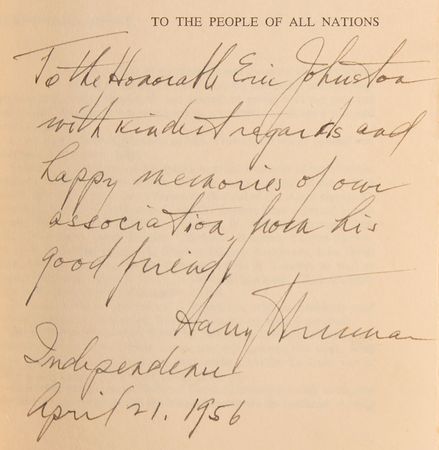 TO THE PEOPLE OF ALL NATIONS
To the Honorable Eric Johnston
with kindest regards and
happy memories of our
association, from his
good friend,
Harry Truman
Independence
April 21, 1956